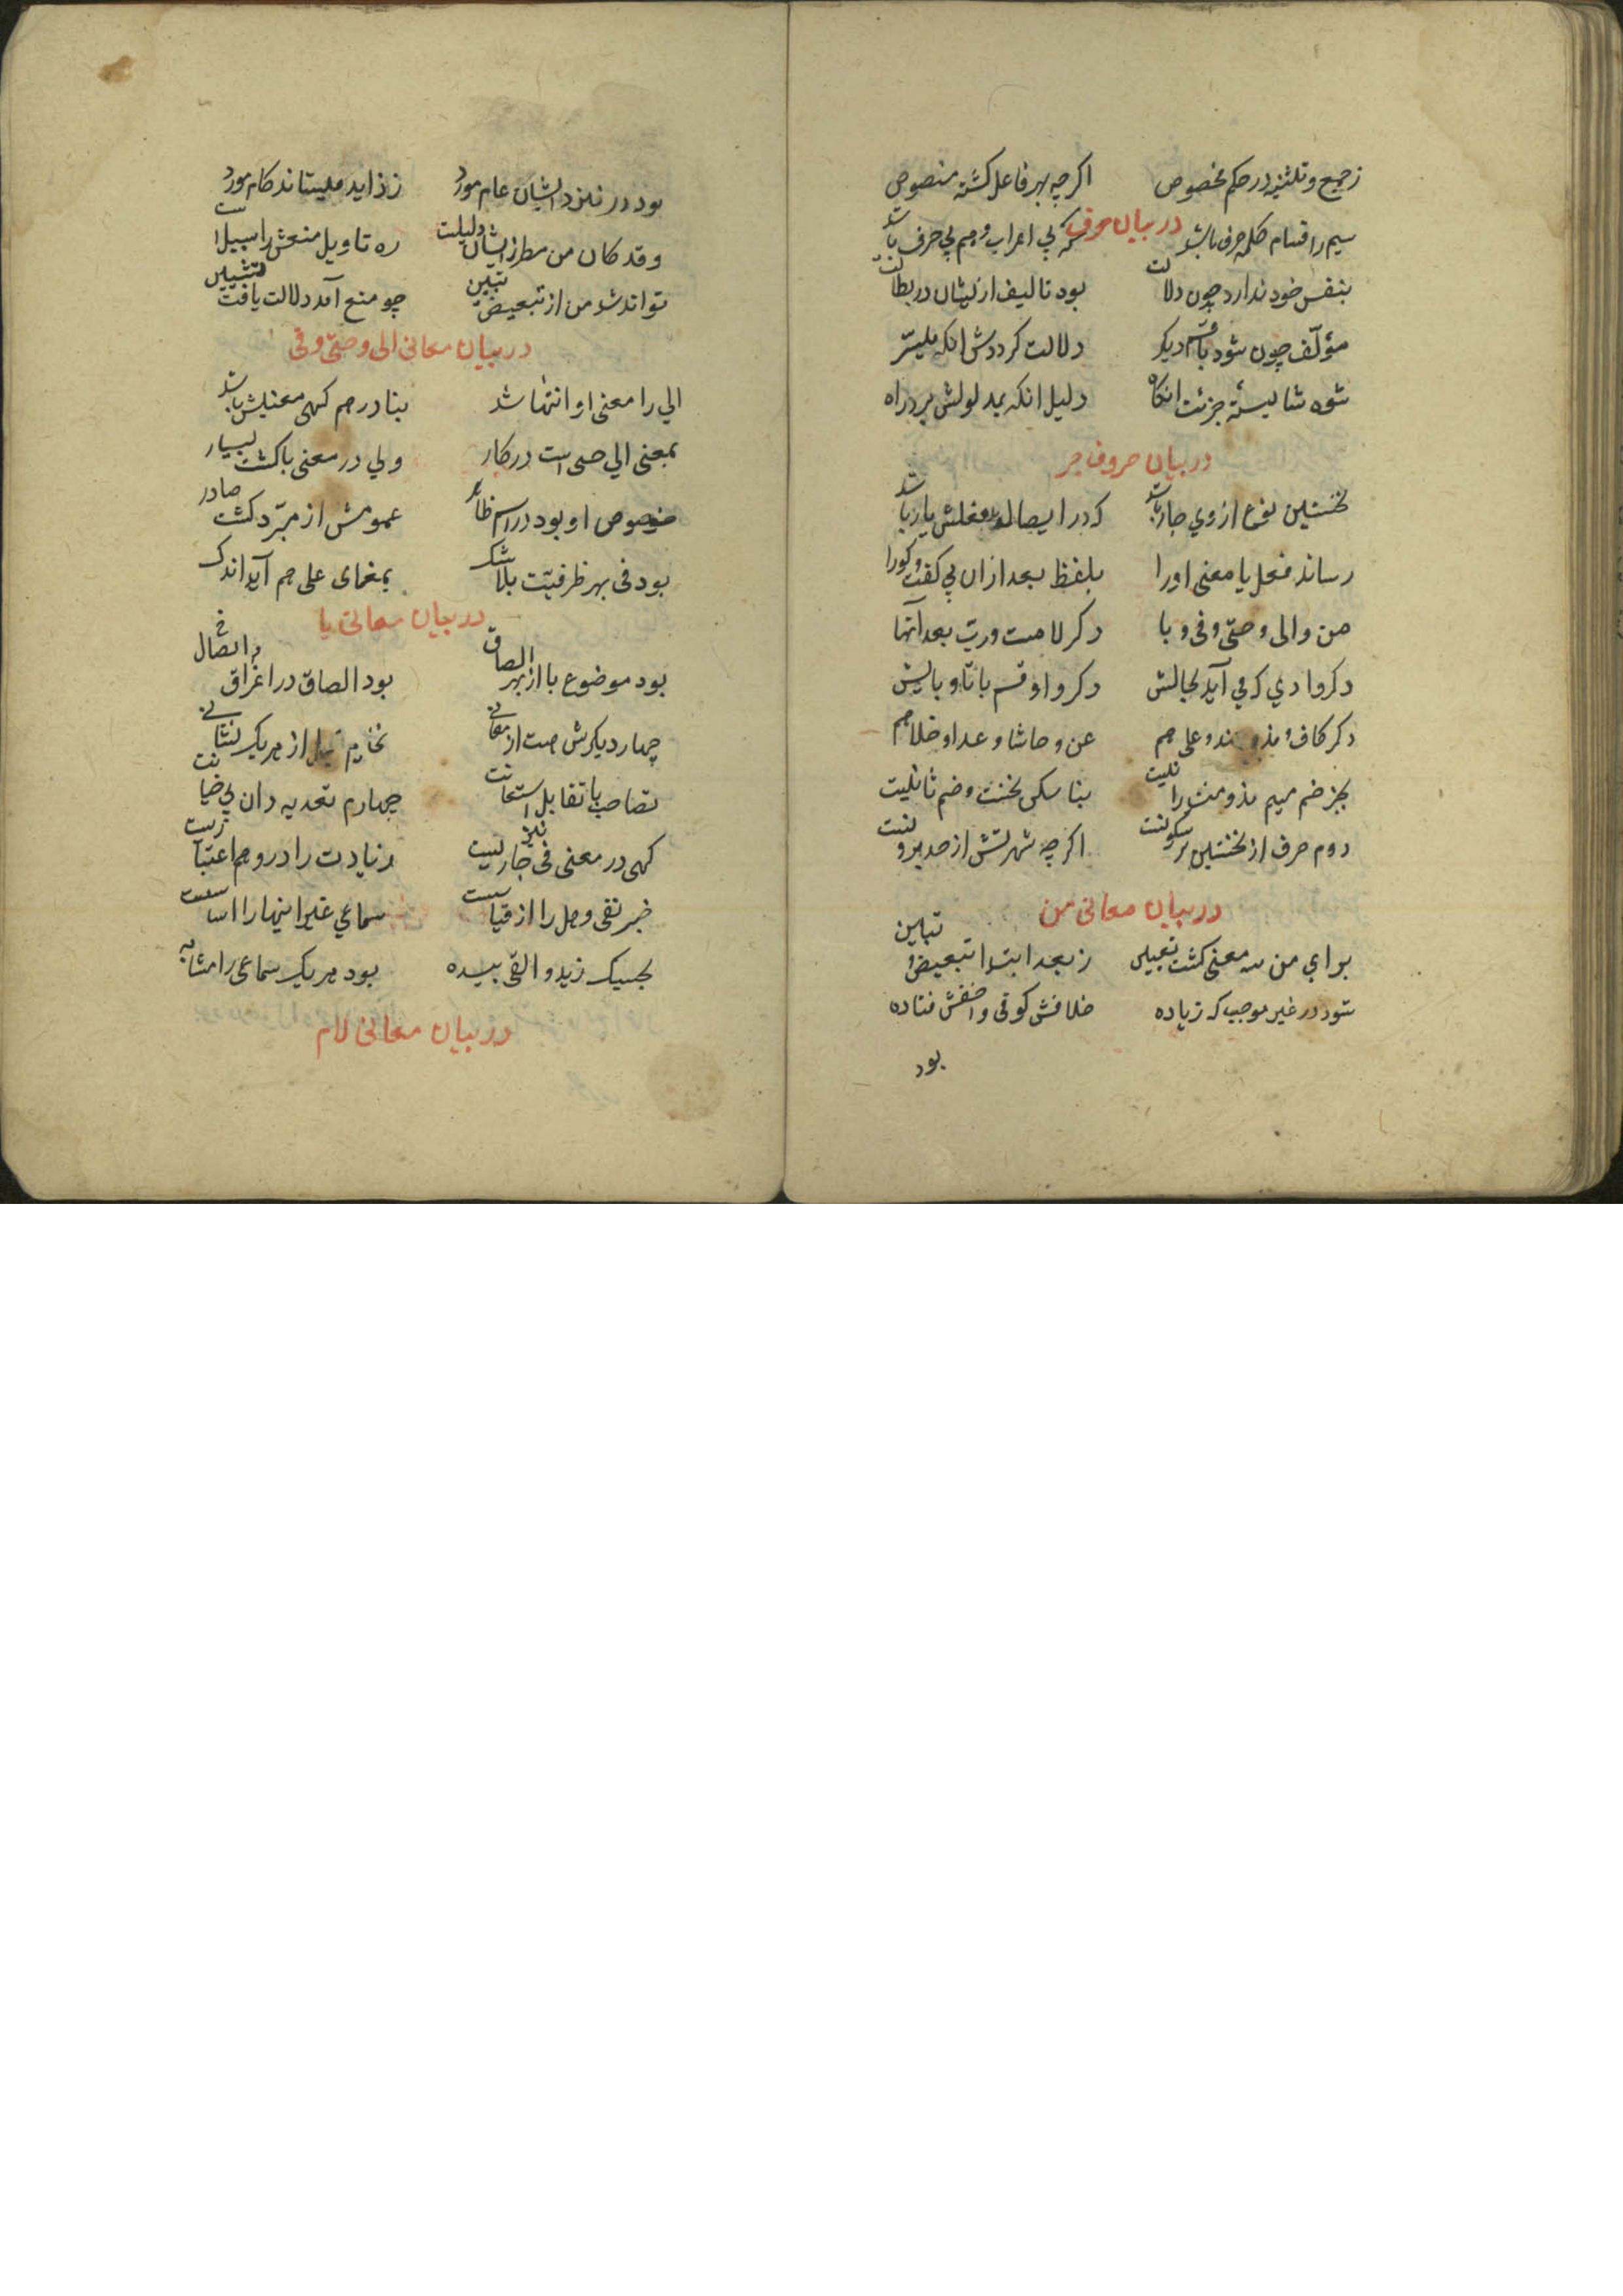 زجمع و تثنیه در حکم مخصوص اکرچه بهر فاعل کشته منصوص
در بیان حرف
سیم ز اقسام کلمه حرف باشد که بی اعراب و هم بی حرف باشد
بنفس خود ندارد چون دلالت بود تالیف ازیشان در بطالت
مؤلف چون شود با قسم دیکر دلالت کرددش انکه میسر
شود شایستهٔ جزئت انکاه دلیل انکه بمدلولش برد راه
در بیان حروف جر
نخستین نوع از وی جار باشد که در ایصال فعلش یار باشد
رساند فعل یا معنی او را بلفظ بعد ازان بی کفت و کو را
من و الی و حتی و فی و با دکر لامست و رب بعد آنها
دکر واوی که می آید بجالش دکر واو قسم با تا و بایش
دکر کاف و مذ و منذ و علی هم عن و حاشا و عدا و خلا هم
بجز ضم میم مذ و منذ را نیست بنا سکن نخست و ضم ثانیست
دوم حرف از نخستین بر سکونست اکرچه شهرتش از حد برونست
در بیان معانی من
برای من سه معنی کشت تعیین ز بعد ابتدا تبعیض و تبیین
شود در غیر موجب که زیاده خلافش کوفی و اخفش فتاده
بود
بود در نزد ایشان عام مورد ز زاید میستاند کام مورد
و قد کان من مطر زایشان دلیلست ره تاویل منعش را سبیلست
تواند شد من از تبعیض و تبیین چو منع آمد دلالت یافت
در بیان معانی الی و حتی و فی
الی را معنی او انتها شد بنا در هم کهی معنیش باشد
بمعنی الی حتی است در کار ولی در معنی با کشت بسیار
خصوص او بود در اسم ظاهر عمومش از مبرد کشت صادر
بود فی بهر ظرفیت بلا شک بمعنای علی هم آید اندک
در بیان معانی با
بود موضوع با از بهر الصاق بود الصاق در اغراق
چهار دیکرش هست از معانی از هر یک نشانی
تصاحب با تقابل استعانت چهارم تعدیه دان بی خیانت
کهی در معنی فی نیز جاریست زیادت را در و هم اعتباریست
خبر نفی و هل را از قیاسست سماعی غیر اینها را اساسست
بحسبک زید و القی بیده بود هر یک سماعی را مشابه
در بیان معانی لام